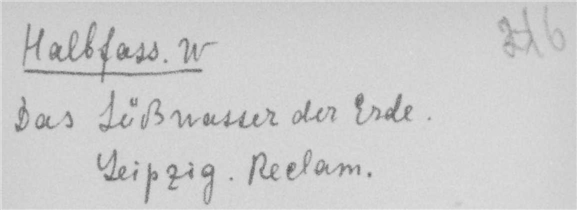 Halbfass. W
Das Süßwasser der Erde.
Leipzig. Reclam.